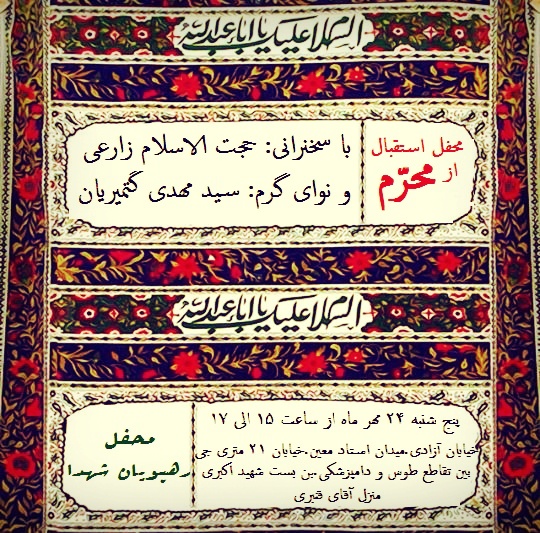 السلام علیک یا اباعبدالله
محفل استقبال
از محرّم
با سخنرانی: حجت الاسلام زارعی
و نوای گرم: سید مهدی گتمیریان
السلام علیک یا اباعبدالله
پنج شنبه ۲۴ مهر ماه از ساعت ۱۵ الی ۱۷
خیابان آزادی.میدان استاد معین.خیابان ۲۱ متری جی
بین تقاطع طوس و دامپزشکی.بن بست شهید اکبری
منزل آقای قنبری
محفل
رهپویان شهدا